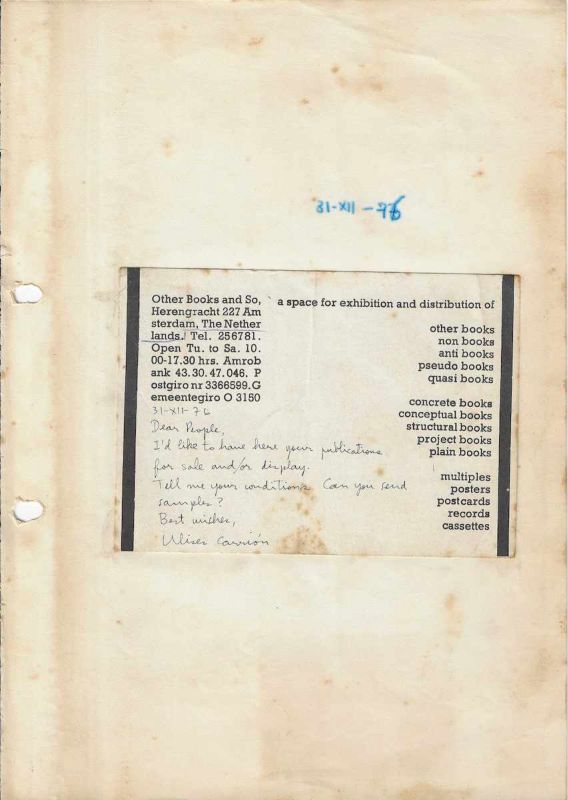 31-XII-76
Other Books and So,
Herengracht 227 Am
sterdam, The Nether
lands. Tel. 256781.
Open Tu. to Sa. 10.
00-17.30 hrs. Amrob
ank 43.30.47.046. P
ostgiro nr 3366599. G
emeentegiro O 3150
a space for exhibition and distribution of
other books
non books
anti books
pseudo books
quasi books
concrete books
conceptual books
structural books
project books
plain books
multiples
posters
postcards
records
cassettes
31-XII-76
Dear People,
I'd like to have here your publications
for sale and/or display.
Tell me your conditions. Can you send
samples?
Best wishes,
Ulises Carrión